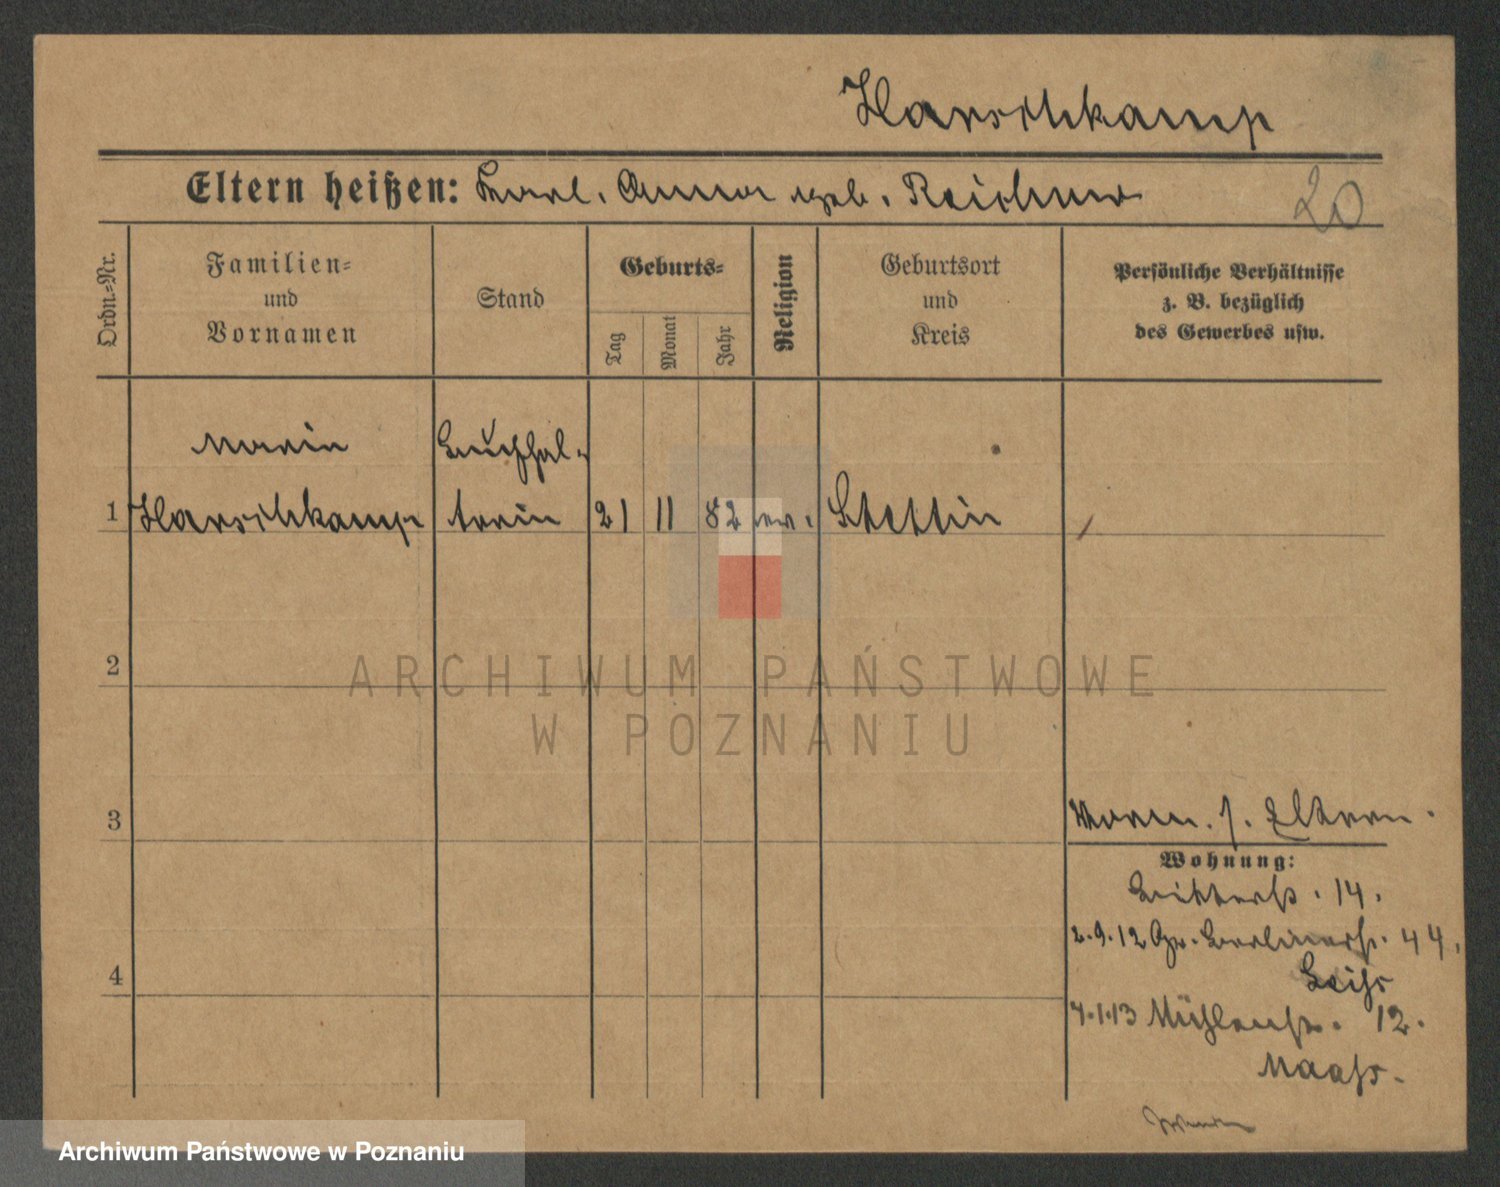 Harschkamp
Eltern heißen: Karl, Anna geb. Reichner
20
Ordn.-Nr.
Familien-
und
Vornamen
Stand
Geburts-
Tag
Monat
Jahr
Religion
Geburtsort
und
Kreis
Persönliche Verhältnisse
z. B. bezüglich
des Gewerbes usw.
Marie Buchhal-
1 Harschkamp terin 21 11 82 ev. Stettin
2
3
4
Worm. s. Eltern.
Wohnung:
Ritterst. 14.
2.9.12 Gr. Berlinerst. 44.
7.1.13 Mühlenstr. 12.
Maass.
ARCHIWUM PAŃSTWOWE
W POZNANIU
Archiwum Państwowe w Poznaniu